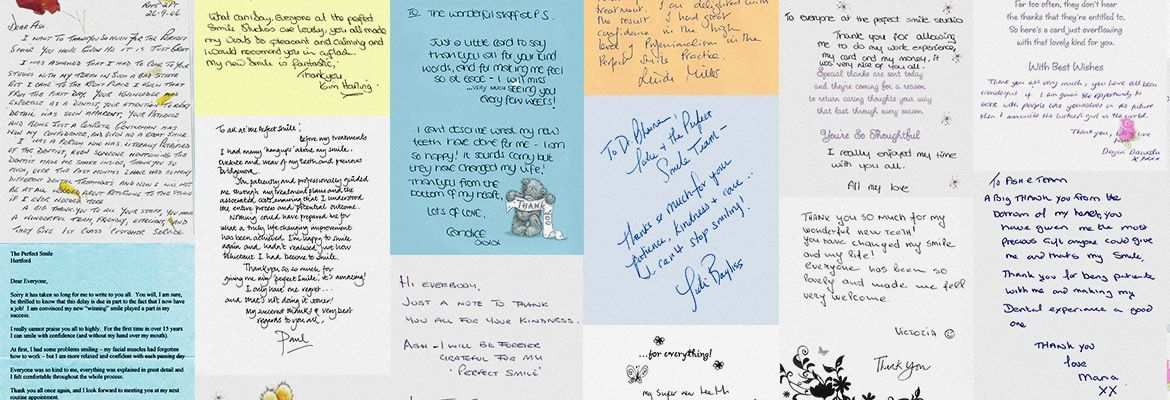 26-9-06
DEAR ASH
I WANT TO THANK YOU SO MUCH FOR THE PERFECT
SMILE YOU HAVE GIVEN ME IT IS JUST GREAT
I WAS ASHAMED THAT I HAD TO COME TO YOUR
STUDIO WITH MY TEETH IN SUCH A BAD STATE
BUT I CAME TO THE RIGHT PLACE I KNEW THAT
FROM THE FIRST DAY. YOUR KNOWLEDGE AND
EXPERTISE AS A DENTIST, YOUR ATTENTION TO EVERY
DETAIL WAS SOON APPARENT, YOUR PATIENCE
AND BEING JUST A COMPLETE GENTLEMAN HAS
WON MY CONFIDENCE, AND GIVEN ME A GREAT SMILE
I WAS A PERSON WHO WAS LITERALLY PETRIFIED
OF THE DENTIST, EVEN SOMEONE MENTIONING THE
DENTIST MADE ME SHAKE INSIDE, THANKYOU SO
MUCH, OVER THE PAST MONTHS I HAVE HAD SO MANY
DIFFERENT DENTAL TREATMENTS AND NOW I WILL NOT
BE AT ALL WORRIED ABOUT RETURNING TO THE STUDIO
IF I EVER NEEDED TO
A BIG THANKYOU TO ALL YOUR STAFF, YOU HAVE
A WONDERFUL TEAM, FRIENDLY, EFFICIENT, AND
THEY GIVE 1ST CLASS CUSTOMER SERVICE
The Perfect Smile
Hertford
Dear Everyone,
Sorry it has taken so long for me to write to you all. You will, I am sure,
be thrilled to know that this delay is due in part to the fact that I now have
a job! I am convinced my new "winning" smile played a part in my
success.
I really cannot praise you all to highly. For the first time in over 15 years
I can smile with confidence (and without my hand over my mouth).
At first, I had some problems smiling – my facial muscles had forgotten
how to work – but I am more relaxed and confident with each passing day
Everyone was so kind to me, everything was explained in great detail and
I felt comfortable throughout the whole process.
Thank you all once again, and I look forward to meeting you at my next
routine appointment.
What can I say. Everyone at the perfect
Smile Studios are lovely, you all made
my visits so pleasant and calming and
I would recommend you 2 others.
My new Smile is fantastic,
Thankyou,
Kim
To all at the Perfect Smile,
Before my treatments
I had many 'hangups' about my smile.
Overbite and wear of my teeth and previous
Bridgework.
You patiently and professionally guided
me through my treatment plans and the
associated costs ensuring that I understood
the entire process and potential outcome.
Nothing could have prepared me for
what a truly life changing improvement
has been achieved. I'm happy to smile
again and hadn't realised just how
reluctant I had become to smile.
Thankyou so so much for
giving me my 'Perfect Smile', it's amazing!
I only have one regret...
and that's not doing it sooner!
My sincerest thanks & very best
regards to you all,
Paul
To The wonderful staff at P.S.
Just a little card to say
thankyou all for your kind
words, and for making me feel
so at ease - I will miss
...very much seeing you
every few weeks!
I can't describe what my new
teeth have done for me - I am
so happy! it sounds corny but
they have changed my life!
Thankyou from the
bottom of my heart,
Lots of love,
Candice
xxxx
THANK YOU
HI EVERYBODY,
JUST A NOTE TO THANK
YOU ALL FOR YOUR KINDNESS.
ASH - I WILL BE FOREVER
GRATEFUL FOR MY
'PERFECT SMILE'
treatment. I am delighted with
the result. I had great
confidence in the high
level of professionalism in the
Perfect Smile Practice.
To Dr.
& the Perfect
Smile Team -
Thanks so much for your
patience, kindness & care...
I can't stop smiling!
Bayliss
...for everything!
My super new teeth
To everyone at the perfect smile studio
Thank you for allowing
me to do my work experience,
my card and my money, it
was very nice of you all.
Special thanks are sent today
and they're coming for a reason
to return caring thoughts your way
that last through every season
You're So Thoughtful
I really enjoyed my time
with you all.
All my love
THANK YOU SO MUCH FOR MY
wonderful new teeth!
you have changed my smile
and my life!
everyone has been so
lovely and made me feel
very welcome.
VICTORIA
Thank You
For too often, they don't hear
the thanks that they're entitled to.
So here's a card just overflowing
with that lovely kind for you.
With Best Wishes
Thank you all very much, you have all been
wonderful if I am given the opportunity to
work with people like yourselves in the future
then I would be the luckiest girl in the world.
Thank you,
love
xxxx
To ASH & TEAM
A BIG THANK YOU from the
bottom of my heart, you
have given me the most
Precious Gift anyone could give
me and that's my Smile.
Thank you for being patient
with me and making my
Dental experience a good
one
THANK YOU
love
Maria
XX